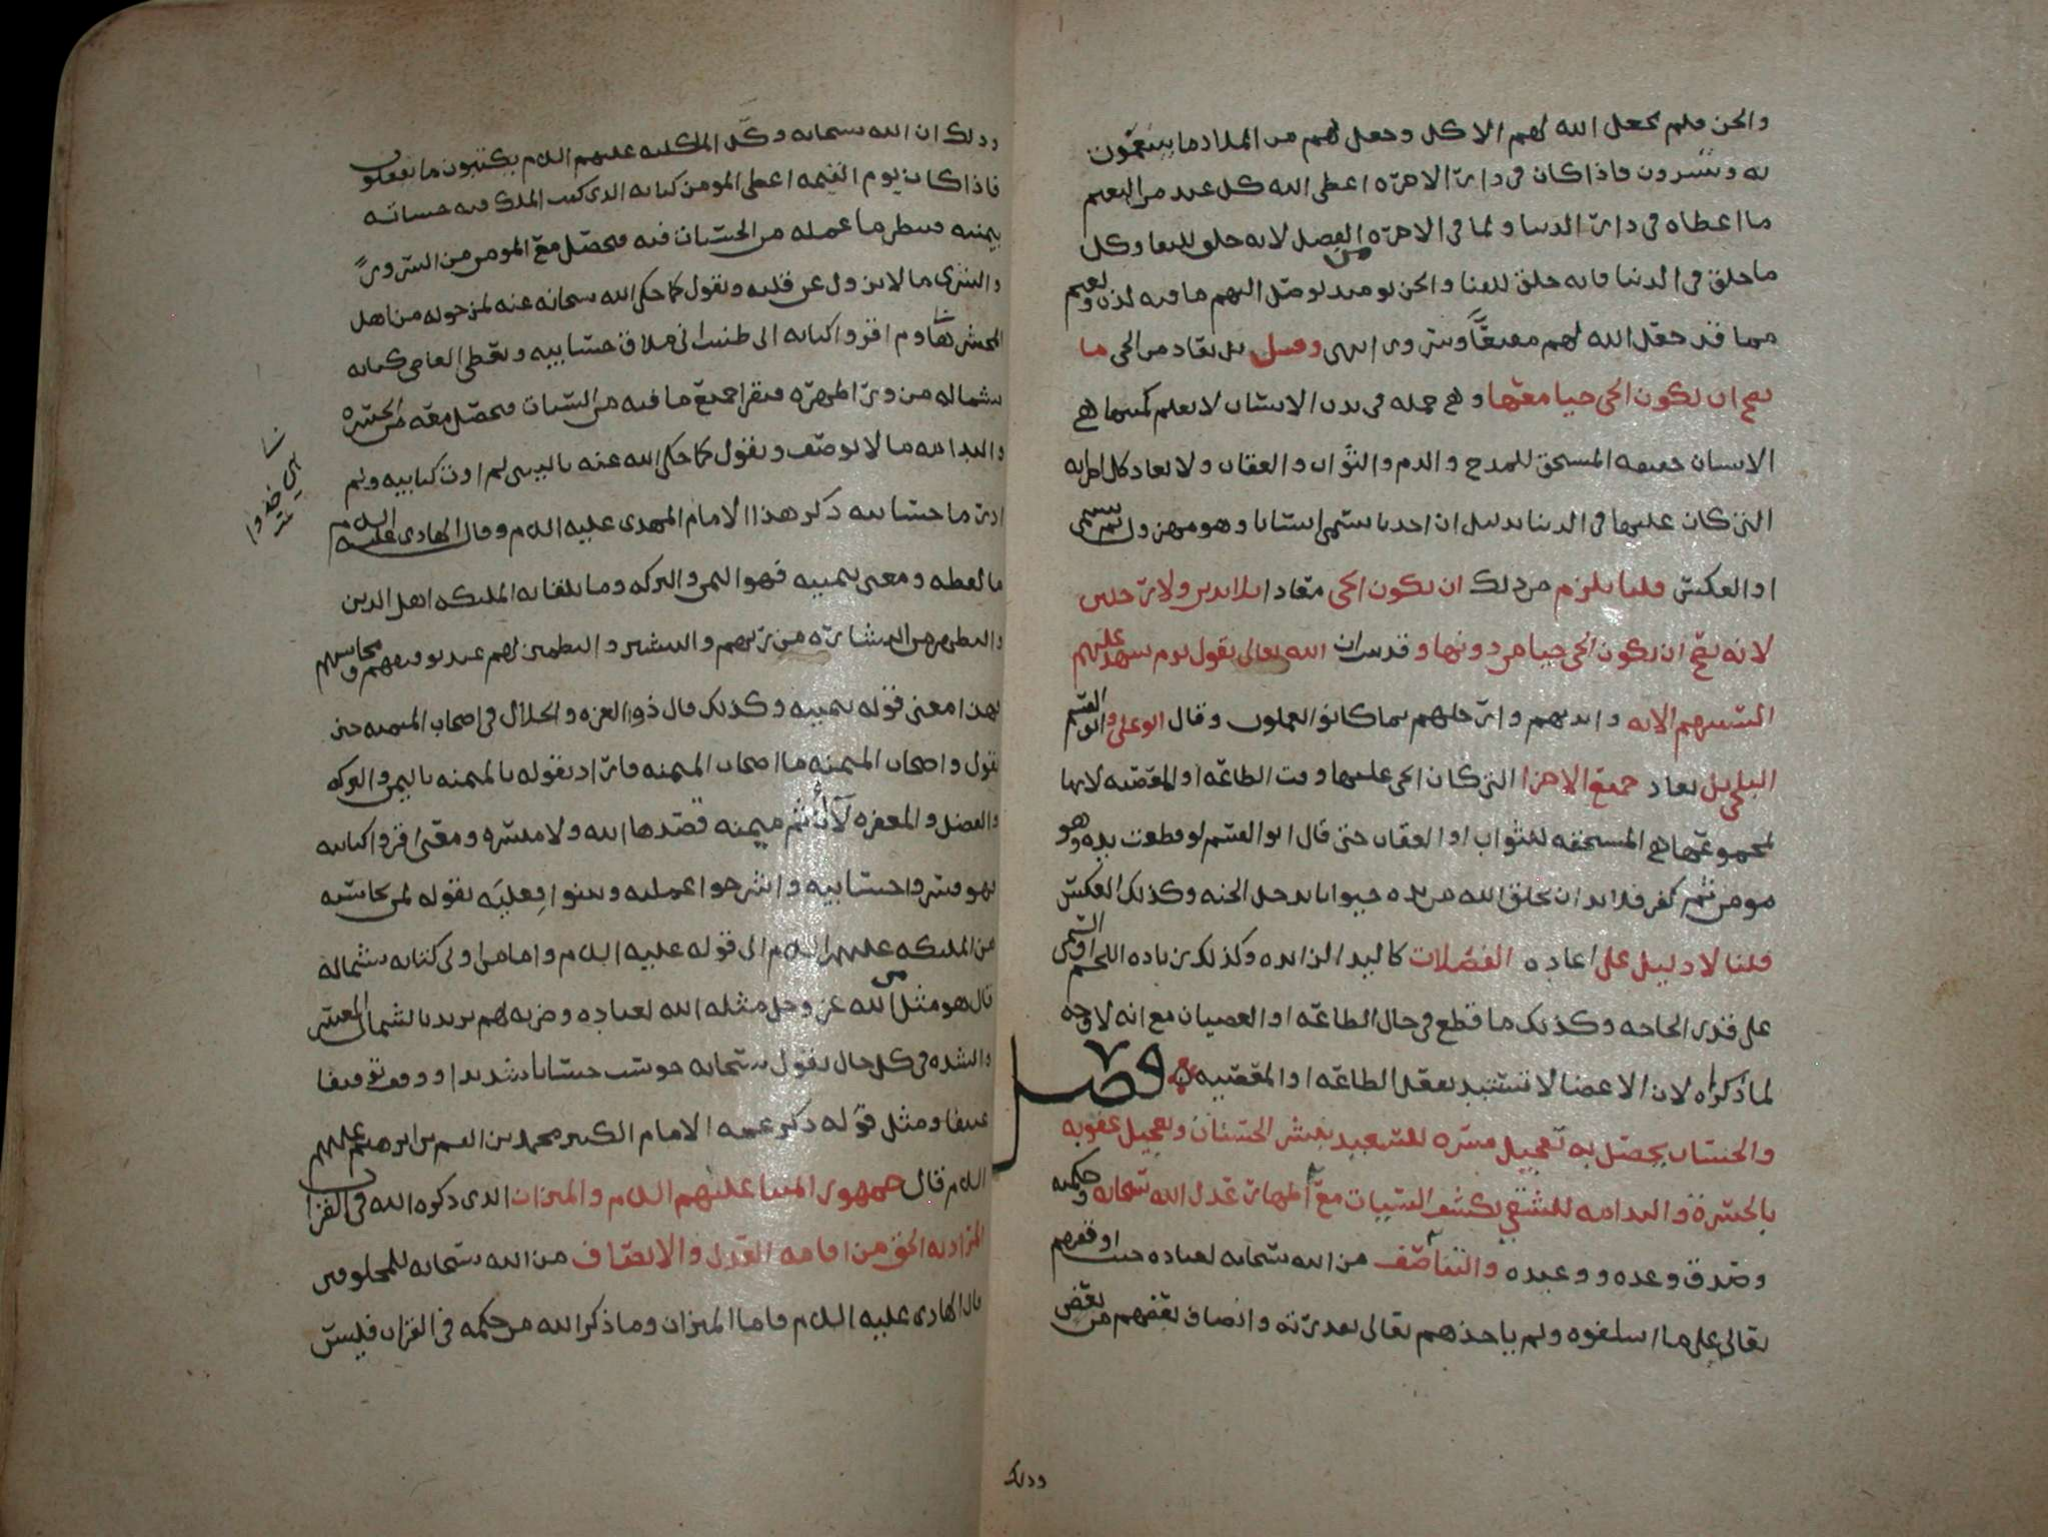 والجن فلم يجعل الله لهم الاكل وجعل لهم من الملاذ ما يتنعمون
به ويسرون فاذا كان في دار الاخره اعطى الله كل عبد من النعيم
ما اعطاه في دار الدنيا ولما في الاخره من الفضل لانه خلق للبقا وكل
ما خلق في الدنيا فانه خلق للفنا والجن يوميذ يوصل اليهم ما فيه لذه ونعيم
مما قد جعل الله لهم معيقا وسرورا انتهى وقيل بل يعاد من الحي ما
يصح ان يكون الحي حيا معها وهي جمله في بدن الانسان لا يعلم كميتها هي
الانسان حقيقه المستحق للمدح والذم والثواب والعقاب ولا يعاد كل اجزايه
التي كان عليها في الدنيا بدليل ان احدنا يسمى انسانا وهو مهزول ثم يسمى
او العكس قلنا يلزم من ذلك ان يكون الحي معادا بلا يدين ولا رجلين
لانه يصح ان يكون الحي حيا من دونها وقد قال الله تعالى يقول يوم تشهد عليهم
السنتهم الايه وايديهم وارجلهم بما كانوا يعملون وقال ابو علي وابو القسم
البلخي بل يعاد جميع الاجزا التي كان الحي عليها وقت الطاعه او المعصيه لانها
لمجموعها هي المستحقه للثواب او العقاب حتى قال ابو القسم لو قطعت يده وهو
مومن ثم كفر فلا بد ان يخلق الله من يده حيوانا يدخل الجنه وكذلك العكس
قلنا لا دليل على اعاده الفضلات كاليد الزايده وكذلك زياده اللحم والشحم
على قدر الحاجه وكذلك ما قطع في حال الطاعه او العصيان مع انه لا وجه
لما ذكراه لان الاعضا لا تستبد بفعل الطاعه او المعصيه فصل
والحساب يحصل به تعجيل مسره للسعيد بنشر الحسنات وتعجيل عقوبه
بالحسرة والندامه للشقي بكشف السيات مع اظهار عدل الله سبحانه وحكمته
وصدق وعده ووعيده والتناصف من الله سبحانه لعباده حيث اوقفهم
تعالى على ما اسلفوه ولم ياخذهم تعالى بقدرته وانصاف بعضهم من بعض
وذلك
وذلك ان الله سبحانه وكل الملئكه عليهم السلام يكتبون ما يفعلون
فاذا كان يوم القيمه اعطى المومن كتابه الذي كتب الملك فيه حسناته
بيمينه فينظر ما عمله من الحسنات فيه فيحصل مع المومن من السرور
والبشرى ما لا يزول عن قلبه ويقول كما حكى الله سبحانه عنه لمن حوله من اهل
المحشر هاوم اقروا كتابيه اني ظننت اني ملاق حسابيه ويعطى العاصي كتابه
بشماله من ورا ظهره فيقرا جميع ما فيه من السيات فيحصل معه من الحسره
والندامه ما لا يوصف ويقول كما حكى الله عنه ياليتني لم اوت كتابيه ولم
ادر ما حسابيه ذكر هذا الامام المهدي عليه السلام وقال الهادي عليه السلام
ما لفظه ومعنى بيمينه فهو اليمن والبركه وما يلقا به الملئكه اهل الدين
والتطهر من البشاره من ربهم والتبشير والتطمين لهم عند توقيفهم ومحاسبتهم
فهذا معنى قوله بيمينه وكذلك قال ذو العزه والجلال في اصحاب الميمنه حين
يقول واصحاب الميمنه ما اصحاب الميمنه فاراد بقوله بالميمنه باليمن والبركه
والفضل والمغفره لا ان ثم ميمنه قصدها الله ولا ميسره ومعنى اقروا كتابيه
فهو فسروا حسابيه واشرحوا عمليه وبينوا فعليه بقوله لمن يحاسبه
من الملئكه عليهم السلام الى قوله عليه السلام واما من اوتي كتابه بشماله
قال هو مثل من الله عز وجل مثله الله لعباده وضربه لهم يريد بالشمال العسر
والشده في كل حال يقول سبحانه حوسب حسابا شديدا ووقف توقيفا
عنيفا ومثل قوله ذكر عمه الامام الكبير محمد بن القسم بن ابرهيم عليهم
السلام قال جمهور ايمتنا عليهم السلام والميزان الذي ذكره الله في القران
المراد به الحق من اقامه العدل والانصاف من الله سبحانه للمخلوقين
قال الهادي عليه السلام فاما الميزان وما ذكر الله من حكمه في القران فليس